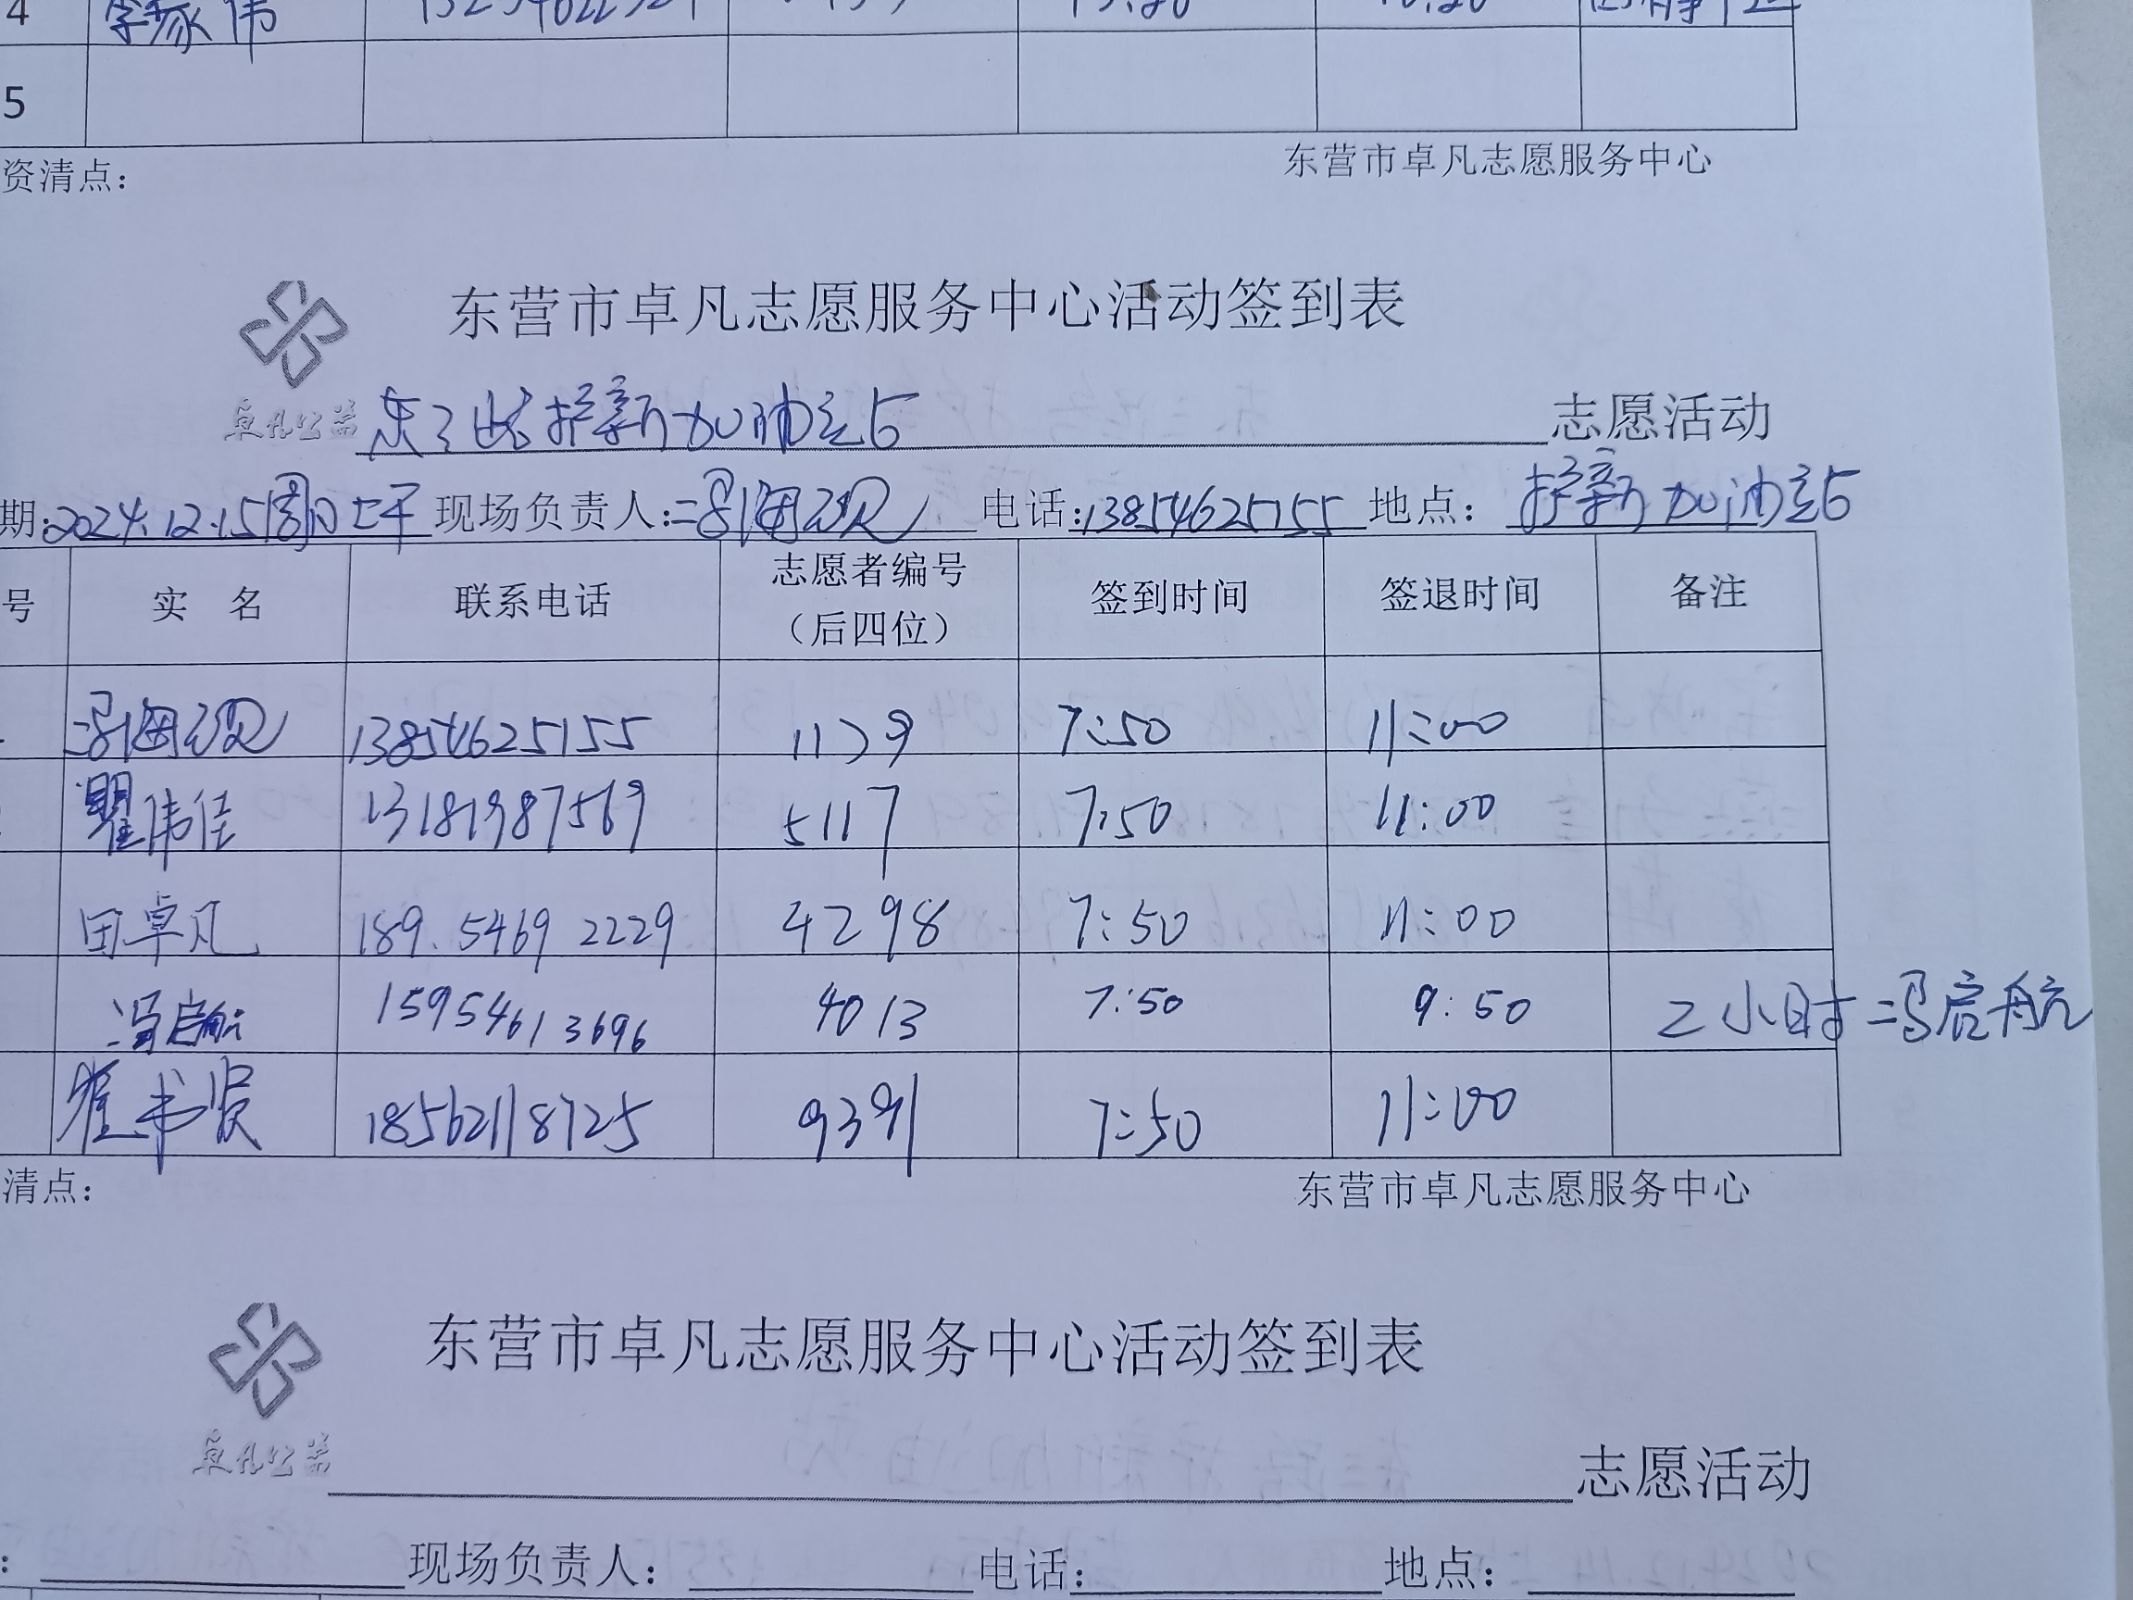 4
5
资清点：
东营市卓凡志愿服务中心
东营市卓凡志愿服务中心活动签到表
卓凡公益 东三路护新加油站 志愿活动
期：2024.12.15周日上午 现场负责人：冯海 电话：13854625155 地点：护新加油站
号 实 名 联系电话 志愿者编号（后四位） 签到时间 签退时间 备注
冯海 13854625155 1139 7:50 11:00
翟伟佳 13181987569 5117 7:50 11:00
田卓凡 189.5469 2229 4298 7:50 11:00
冯启航 15954613696 4013 7:50 9:50 2小时 冯启航
崔书贤 18562118725 9391 7:50 11:00
清点：
东营市卓凡志愿服务中心
东营市卓凡志愿服务中心活动签到表
卓凡公益 志愿活动
： 现场负责人： 电话： 地点：